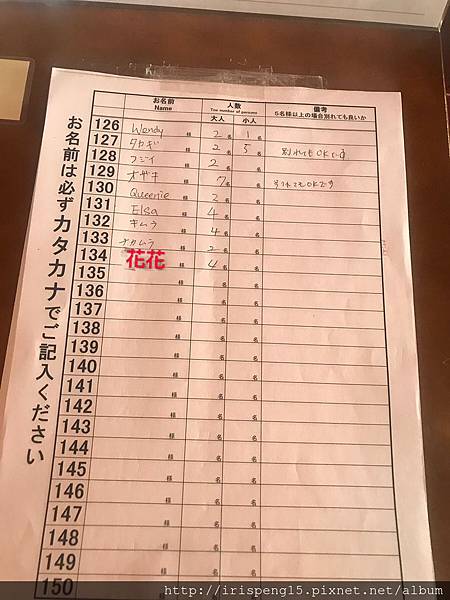 お名前は必ずカタカナでご記入ください
お名前 Name 人数 The number of persons 備考
大人 小人 5名様以上の場合別れても良いか
126 Wendy 様 2名 1名
127 タカギ 様 2名 5名 別れてもOKです
128 フジイ 様 2名 名
129 オザキ 様 7名 名 別れてもOKです
130 Queenie 様 2名 名
131 Elsa 様 4名 名
132 キムラ 様 4名 名
133 ナカムラ 様 2名 名
134 花花 様 4名 名
135 様 名 名
136 様 名 名
137 様 名 名
138 様 名 名
139 様 名 名
140 様 名 名
141 様 名 名
142 様 名 名
143 様 名 名
144 様 名 名
145 様 名 名
146 様 名 名
147 様 名 名
148 様 名 名
149 様 名 名
150 様 名 名
http://irispeng15.pixnet.net/album